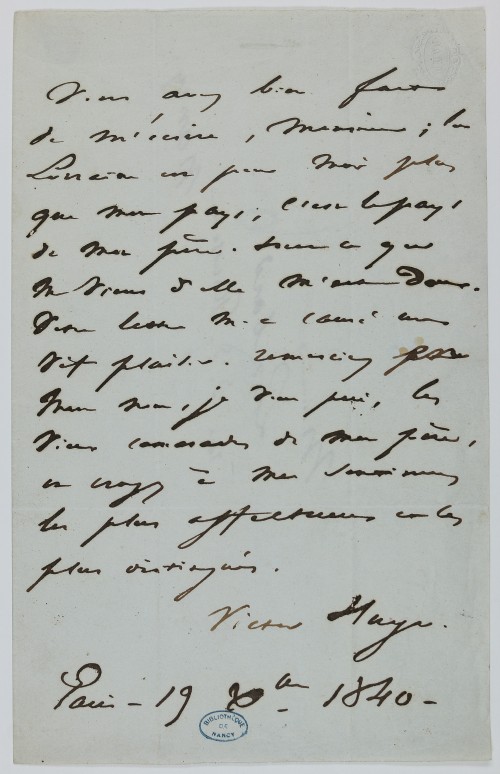 Vous avez bien fait
de m'écrire, Monsieur ; la
Lorraine est pour moi plus
que mon pays, c'est le pays
de mon père. tout ce qui
me vient d'elle m'est doux.
Votre lettre m'a causé un
vif plaisir. remerciez pour
mon nom, je vous prie, les
vieux camarades de mon père,
et croyez à mes sentiments
les plus affectueux et les
plus distingués.
Victor Hugo.
Paris – 19 Xbre 1840 –
BIBLIOTHÈQUE
DE
NANCY